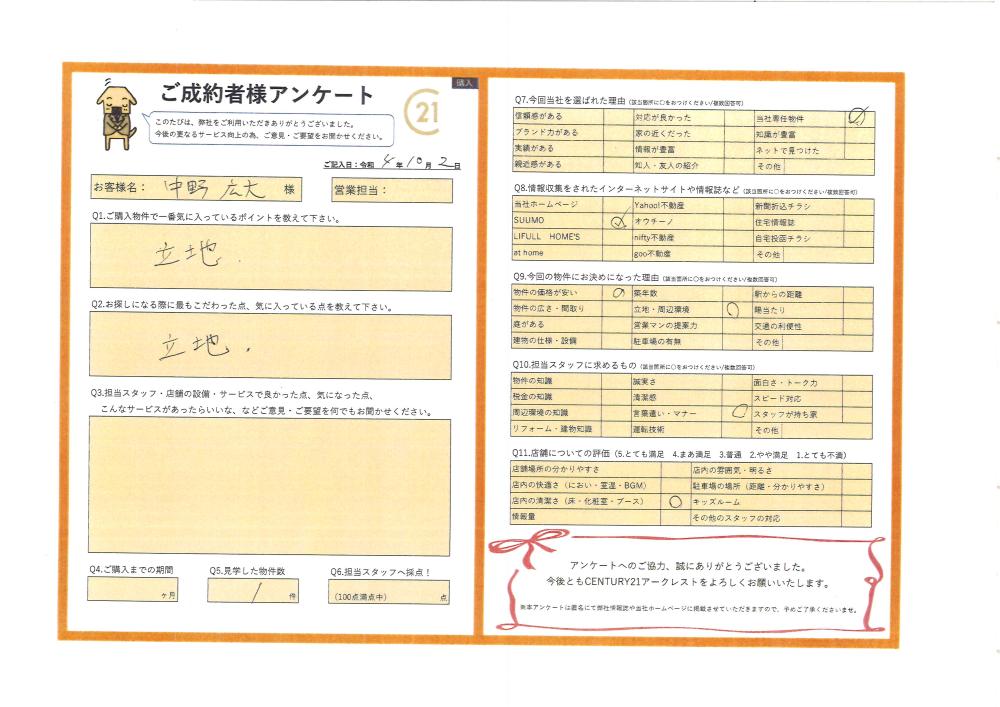 購入
ご成約者様アンケート
21
このたびは、弊社をご利用いただきありがとうございました。
今後の更なるサービス向上の為、ご意見・ご要望をお聞かせください。
ご記入日：令和 4 年 10 月 2 日
お客様名： 中野 広大 様
営業担当：
Q1.ご購入物件で一番気に入っているポイントを教えて下さい。
立地.
Q2.お探しになる際に最もこだわった点、気に入っている点を教えて下さい。
立地.
Q3.担当スタッフ・店舗の設備・サービスで良かった点、気になった点、
こんなサービスがあったらいいな、などご意見・ご要望を何でもお聞かせください。
Q4.ご購入までの期間
ヶ月
Q5.見学した物件数
1 件
Q6.担当スタッフへ採点！
(100点満点中) 点
Q7.今回当社を選ばれた理由 (該当箇所に○をおつけください/複数回答可)
信頼感がある 対応が良かった 当社専任物件 ○
ブランド力がある 家の近くだった 知識が豊富
実績がある 情報が豊富 ネットで見つけた
親近感がある 知人・友人の紹介 その他
Q8.情報収集をされたインターネットサイトや情報誌など (該当箇所に○をおつけください/複数回答可)
当社ホームページ Yahoo!不動産 新聞折込チラシ
SUUMO ○ オウチーノ 住宅情報誌
LIFULL HOME'S nifty不動産 自宅投函チラシ
at home goo不動産 その他
Q9.今回の物件にお決めになった理由 (該当箇所に○をおつけください/複数回答可)
物件の価格が安い ○ 築年数 駅からの距離
物件の広さ・間取り 立地・周辺環境 ○陽当たり
庭がある 営業マンの提案力 交通の利便性
建物の仕様・設備 駐車場の有無 その他
Q10.担当スタッフに求めるもの (該当箇所に○をおつけください/複数回答可)
物件の知識 誠実さ 面白さ・トーク力
税金の知識 清潔感 スピード対応
周辺環境の知識 言葉遣い・マナー ○ スタッフが持ち家
リフォーム・建物知識 運転技術 その他
Q11.店舗についての評価（5.とても満足 4.まあ満足 3.普通 2.やや満足 1.とても不満）
店舗場所の分かりやすさ 店内の雰囲気・明るさ
店内の快適さ（におい・室温・BGM） 駐車場の場所（距離・分かりやすさ）
店内の清潔さ（床・化粧室・ブース） ○ キッズルーム
情報量 その他のスタッフの対応
アンケートへのご協力、誠にありがとうございました。
今後ともCENTURY21アークレストをよろしくお願いいたします。
※本アンケートは匿名にて弊社情報誌や当社ホームページに掲載させていただきますので、予めご了承くださいませ。